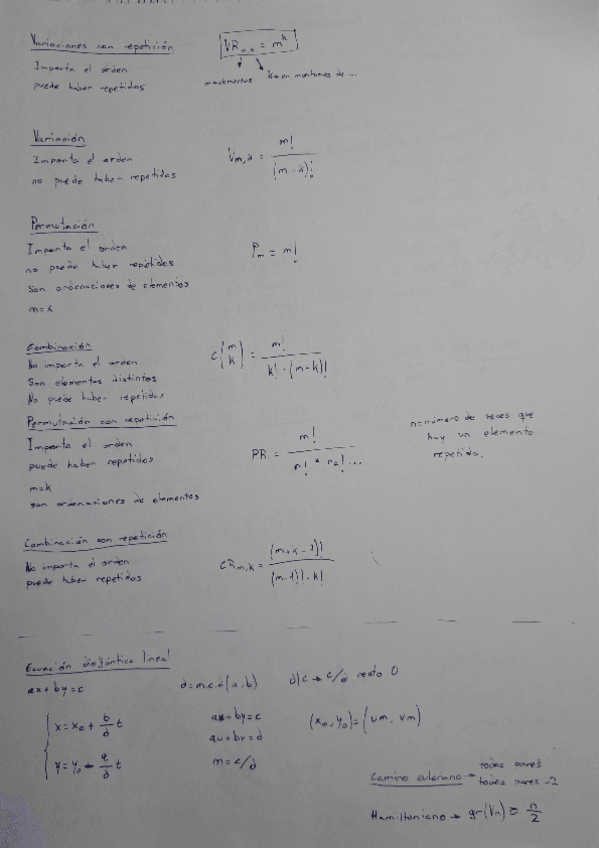 Variaciones con repetición
VRm,k = m^k
Importa el orden
puede haber repetidos
m elementos
en montones de ...
Variación
Importa el orden
no puede haber repetidos
Vm,k = m! / (m - k)!
Permutación
Importa el orden
no puede haber repetidos
Son ordenaciones de elementos
m=k
Pm = m!
Combinación
No importa el orden
Son elementos distintos
No puede haber repetidos
C(m k) = m! / k! · (m-k)!
Permutación con repetición
Importa el orden
puede haber repetidos
m=k
son ordenaciones de elementos
PR = m! / n! * n2! ...
n=número de veces que
hay un elemento
repetido.
Combinación con repetición
No importa el orden
puede haber repetidos
CRm,k = (m+k-1)! / (m-1)! · k!
Ecuación diofántica lineal
ax+by=c
d=m.c.d(a,b)
d|c → c/d resto 0
x=x0 + b/d t
y=y0 - a/d t
ax+by=c
au+bv=d
m=c/d
(x0, y0)=(um, vm)
Camino euleriano → todos pares
todos pares -2
Hamiltoniano → gr(Vn) ≥ n/2